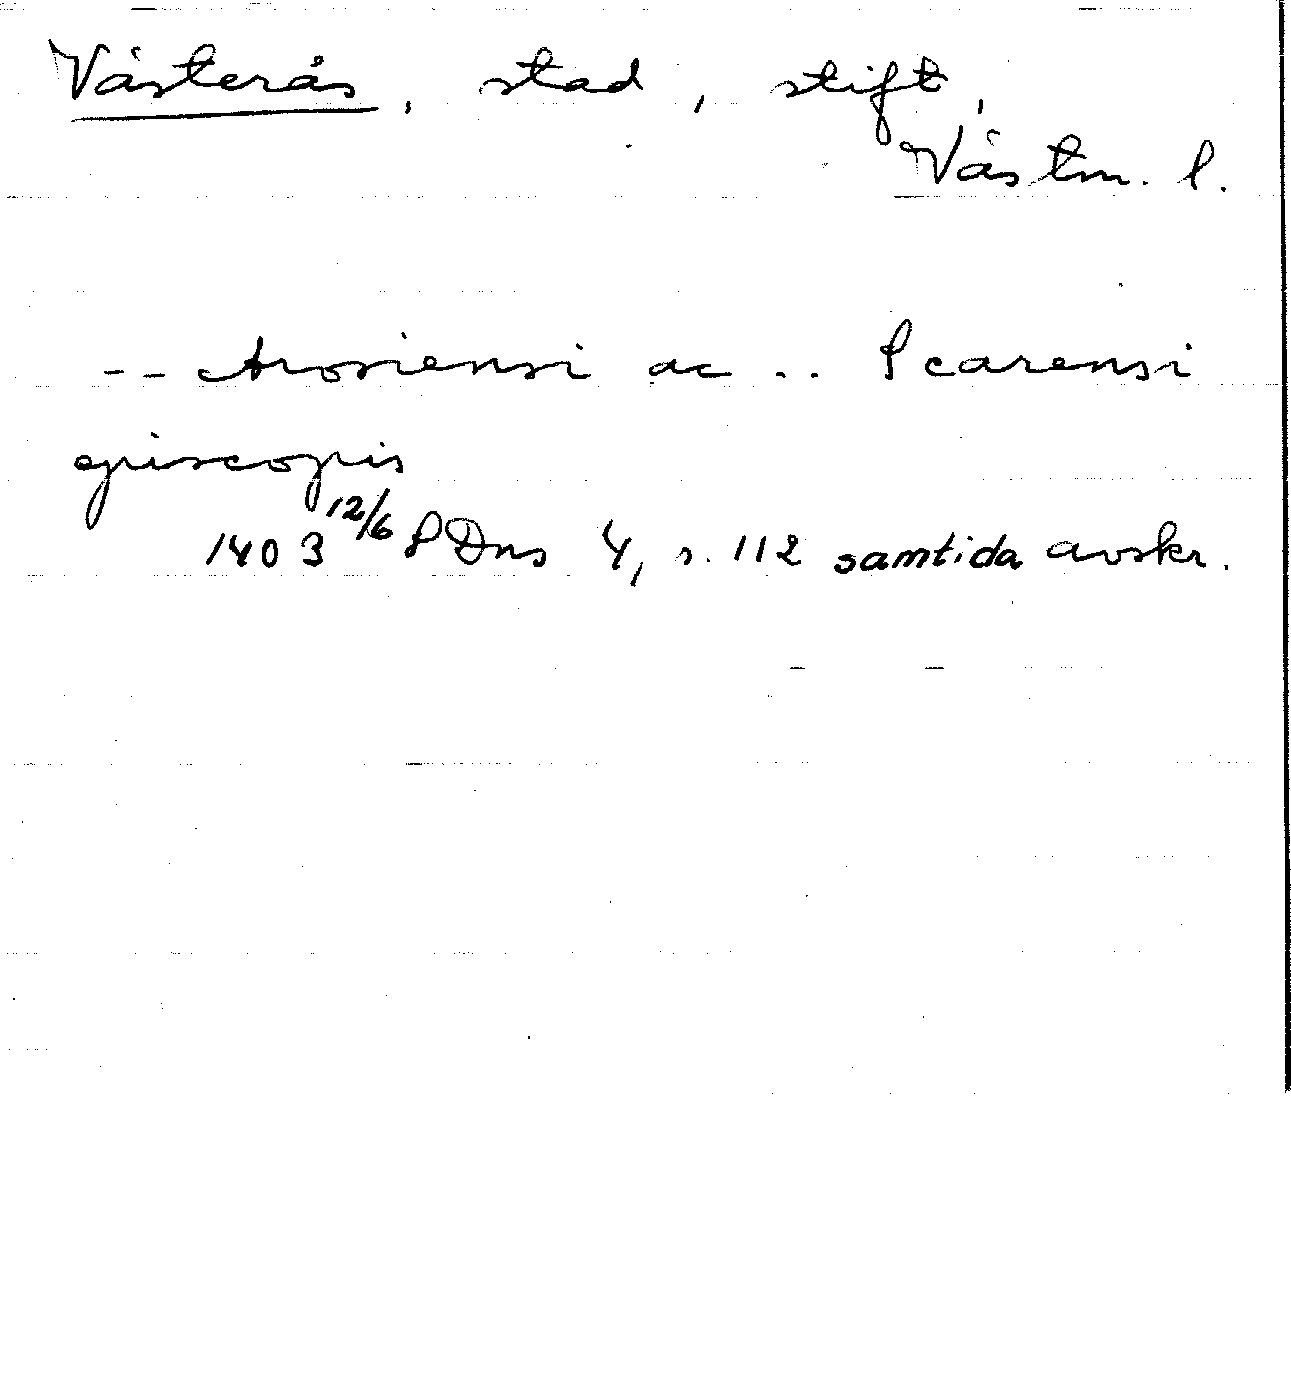 Västerås, stad, stift,
Västm. l.
-- Arosiensi ac .. Scarensi
episcopis
1403 12/6 SDns 4, s. 112 samtida avskr.